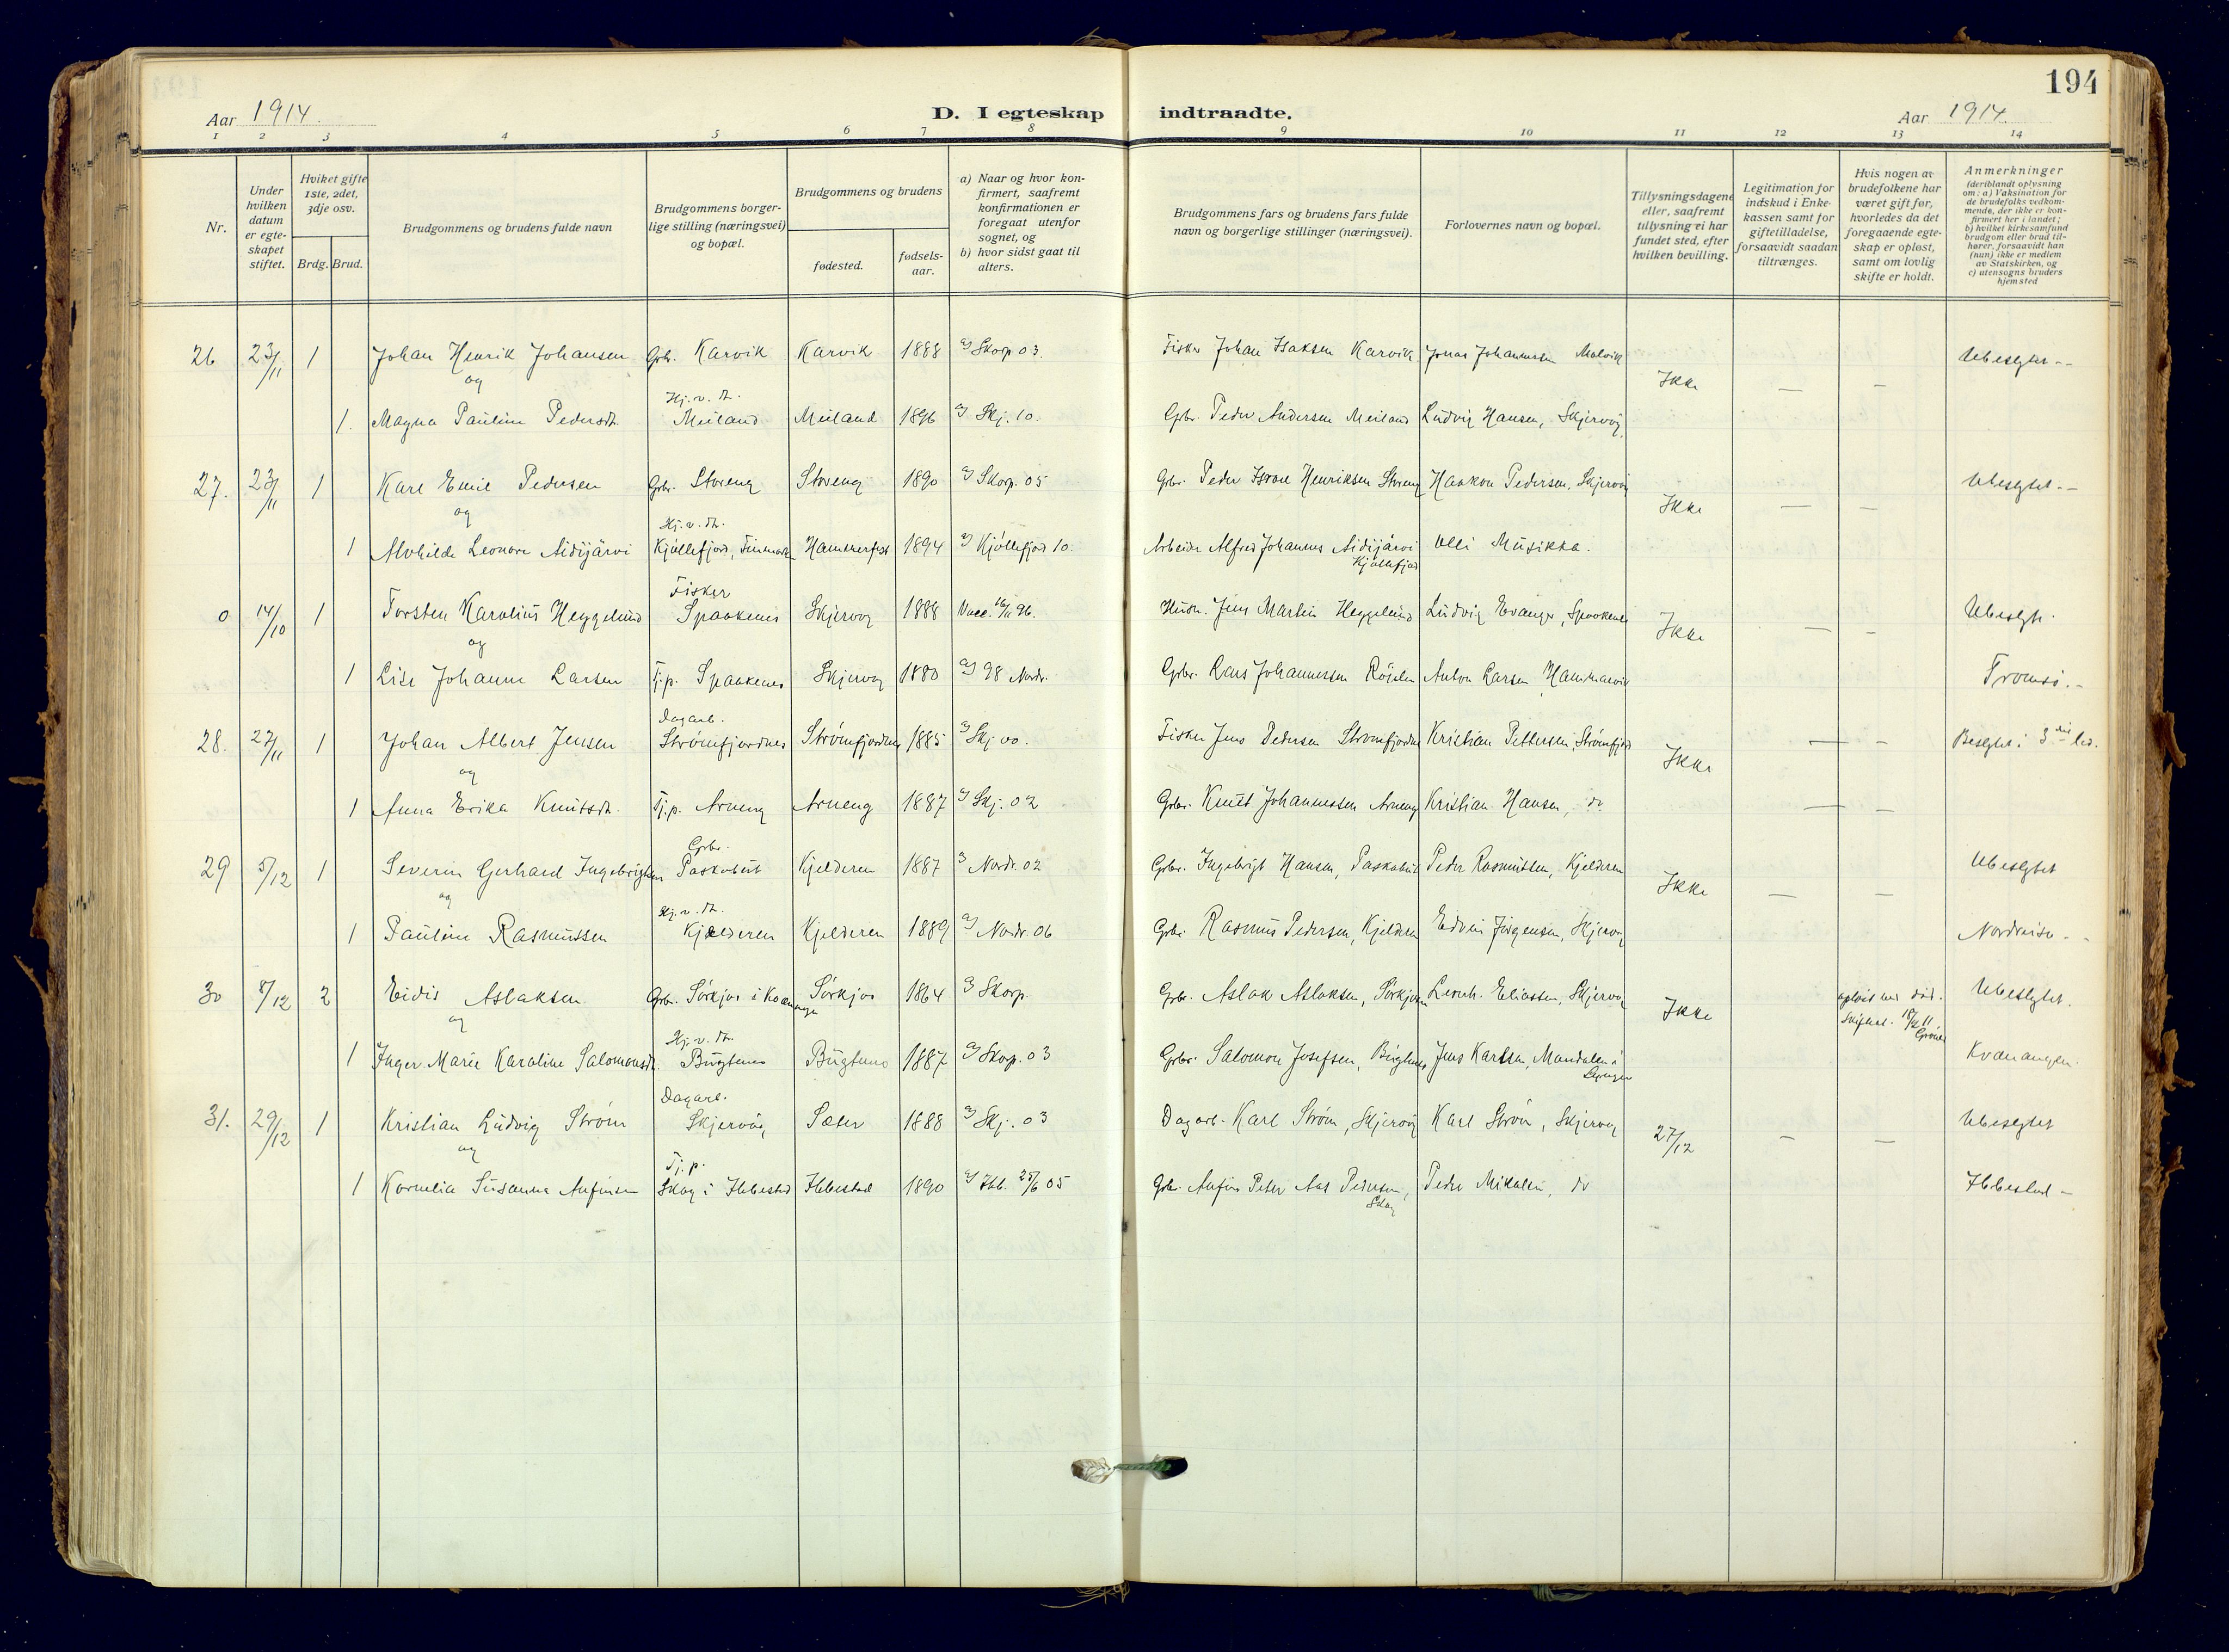 194
Aar 1914. D. I egteskap indtraadte. Aar 1914.
1 2 3 4 5 6 7 8 9 10 11 12 13 14
Nr.
Under hvilken datum er egteskapet stiftet.
Hvilket gifte 1ste, 2det, 3dje osv.
Brdg. Brud.
Brudgommens og brudens fulde navn
Brudgommens borgerlige stilling (næringsvei) og bopæl.
Brudgommens og brudens
fødested. fødselsaar.
a) Naar og hvor konfirmert, saafremt konfirmationen er foregaat utenfor sognet, og
b) hvor sidst gaat til alters.
Brudgommens fars og brudens fars fulde navn og borgerlige stillinger (næringsvei).
Forlovernes navn og bopæl.
Tillysningsdagene eller, saafremt tillysning ei har fundet sted, efter hvilken bevilling.
Legitimation for indskud i Enkekassen samt for giftetilladelse, forsaavidt saadan tiltrænges.
Hvis nogen av brudefolkene har været gift før, hvorledes da det foregaaende egteskap er opløst, samt om lovlig skifte er holdt.
Anmerkninger (deriblandt oplysning om: a) Vaksination for de brudefolks vedkommende, der ikke er konfirmert her i landet; b) hvilket kirkesamfund brudgom eller brud tilhører, forsaavidt han (hun) ikke er medlem av Statskirken, og c) utensogns bruders hjemsted
26 23/11 1 Johan Henrik Johansen Grbr. Karvik Karvik 1888 a) Skorp 03. Fisker Johan Isaksen Karvik Jonas Johannessen Malvik Ikke — — Ubeslgtet --
og
Hj. v. dt.
1. Magna Pauline Pedersdt. Meiland Meiland 1896 a) Skj. 10. Grbr. Peder Andersen Meiland Ludvig Hansen, Skjervöy.
27. 23/11 1 Karl Emil Pedersen Grbr. Storeng Storeng 1890 a) Skorp. 05 Grbr. Peder Henriksen Storeng Haakon Pedersen, Skjervöy Ikke — — Ubeslgtet.-
og
Hj. v. dt.
1 Alvhilde Leonore Aidijärvi Kjöllefjord, Finmarken Hammerfest 1894 a) Kjöllefjord 10. Arbeider Alfred Johannes Aidijärvi Kjöllefjord Olli Musikka.
Fisker
0 14/10 1 Torsten Karolius Heggelund Spaakenes Skjervöy 1888 Vacc. 16/11 96. Husm. Jens Martin Heggelund Ludvig Evanger, Spaakenes Ikke — — Ubeslgt.
og
1 Lise Johanne Larsen Tj.p. Spaakenes Skjervöy 1880 a) 98 Nordr. Grbr. Lars Johannessen Röjelen Anton Larsen Hammarvik Tromsö.-
Dagarb.
28. 27/11 1 Johan Albert Jensen Strömfjordnes Strömfjordnes 1885 a) Skj. 00. Fisker Jens Pedersen Strömfjordnes Kristian Pettersen, Strömfjord Ikke — — Beslgtet i 3die led.
og
1 Anna Erika Knutsdt. Tj.p. Arneng Arneng 1887 a) Skj. 02 Grbr. Knut Johannessen Arneng Kristian Hansen, do — —
Grbr.
29 5/12 1 Severin Gerhard Ingebrigtsen Paskabut Kjelderen 1887 a) Nordr. 02 Grbr. Ingebrigt Hansen, Paskabut Peder Rasmussen, Kjelderen Ikke — — Ubeslgtet
og
Hj. v. dt.
1 Pauline Rasmussen Kjelderen Kjelderen 1889 a) Nordr. 06 Grbr. Rasmus Pedersen, Kjelderen Edvin Jörgensen, Skjervöy Nordreisa --
30 8/12 2 Eidis Aslaksen Grbr. Sörkjos i Kvænangen Sörkjos 1864 a) Skorp. Grbr. Aslak Aslaksen, Sörkjosen Leonh. Eliassen, Skjervöy Ikke opløst ved död. Ubeslgtet.
og
Hj. v. dt.
1 Inger Marie Karoline Salomonsdt. Bugtenes Bugtenes 1887 a) Skorp. 03 Grbr. Salomon Josefsen, Bugtenes Jens Karlsen, Mandalen i Lyngen Kvænangen.
Dagarb.
31. 29/12 1 Kristian Ludvig Ström Skjervöy Sæter 1888 a) Skj. 03 Dagarb. Karl Ström, Skjervöy Karl Ström, Skjervöy 27/12 — — Ubeslgtet
og
Tj.p.
1 Kornelia Susanna Anfinsen Skog i Ibbestad Ibbestad 1890 a) Ibb. 25/6 05 Grbr. Anfin Peter Aas Pedersen, Skog Peder Mikalsen, do Ibbestad -